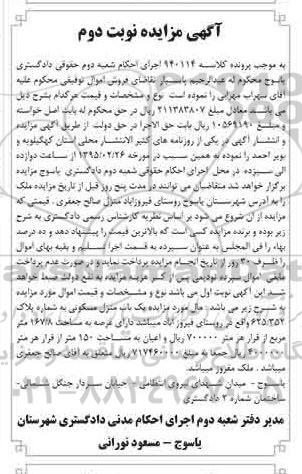 آگهی مزایده نوبت دوم
به موجب پرونده کلاسه ۹۴۰۱۱۴ اجرای احکام شعبه دوم حقوقی دادگستری
یاسوج محکوم له عبدالرحیم پاسیار تقاضای فروش اموال توقیفی محکوم علیه
آقای سهراب مهرابی را نموده است نوع و مشخصات و قیمت هرکدام بشرح ذیل
می باشد. معادل مبلغ ۲۱۱۳۸۳۸۰۷ ریال در حق محکوم له بابت اصل خواسته
و مبلغ ۱۰۵۶۹۱۹۰ ریال بابت حق الاجرا در حق دولت از طریق آگهی مزایده
و انتشار آگهی در یکی از روزنامه های کثیر الانتشار محلی استان کهگیلویه و
بویر احمد را نموده به همین سبب در مورخه ۱۳۹۵/۰۲/۲۶ از ساعت دوازده
الی سیزده در محل اجرای احکام حقوقی شعبه دوم دادگستری یاسوج مزایده
برگزار خواهد شد متقاضیان می توانند در مدت پنج روز قبل از تاریخ مزایده ملک
را به آدرس شهرستان یاسوج روستای فیروزآباد منزل صالح جعفری . قیمتی که
مزایده از آن شروع می شود بر اساس نظریه کارشناس رسمی دادگستری به شرح
زیر بوده و برنده مزایده کسی است که بالاترین قیمت را پیشنهاد دهد و ده درصد
بهاء را فی المجلس به عنوان سپرده به قسمت اجرا تسلیم و بقیه بهای اموال
را ظرف ۳۰ روز از تاریخ انجام مزایده پرداخت نماید و در صورت عدم پرداخت
مابقی اموال سپرده تودیعی پس از کسر هزینه مزایده به نفع دولت ضبط خواهد
شد این آگهی نوبت اول می باشد نوع و مشخصات و قیمت اموال مورد مزایده
به شرح زیر می باشد: مال مورد مزایده یک باب منزل مسکونی به شماره پلاک
۶۲۵/۳۵۲ واقع در روستای فیروز آباد میباشد دارای عرصه به مساحت ۱۶۷/۸ متر
مربع از قرار هر متر ۷۰۰۰۰۰ ریال و اعیان به مساحت ۱۵۰ متر از قرار هر متر
۴۰۰۰۰۰۰ ریال جمعا به مبلغ ۷۱۷۴۶۰۰۰۰ ریال متعلق به آقای صالح جعفری
میباشد . ملک مفروز میباشد.
یاسوج - میدان شهدای نیروی انتظامی - خیابان سردار جنگل شمالی-
ساختمان شماره ۲ دادگستری
مدیر دفتر شعبه دوم اجرای احکام مدنی دادگستری شهرستان
یاسوج - مسعود نورانی